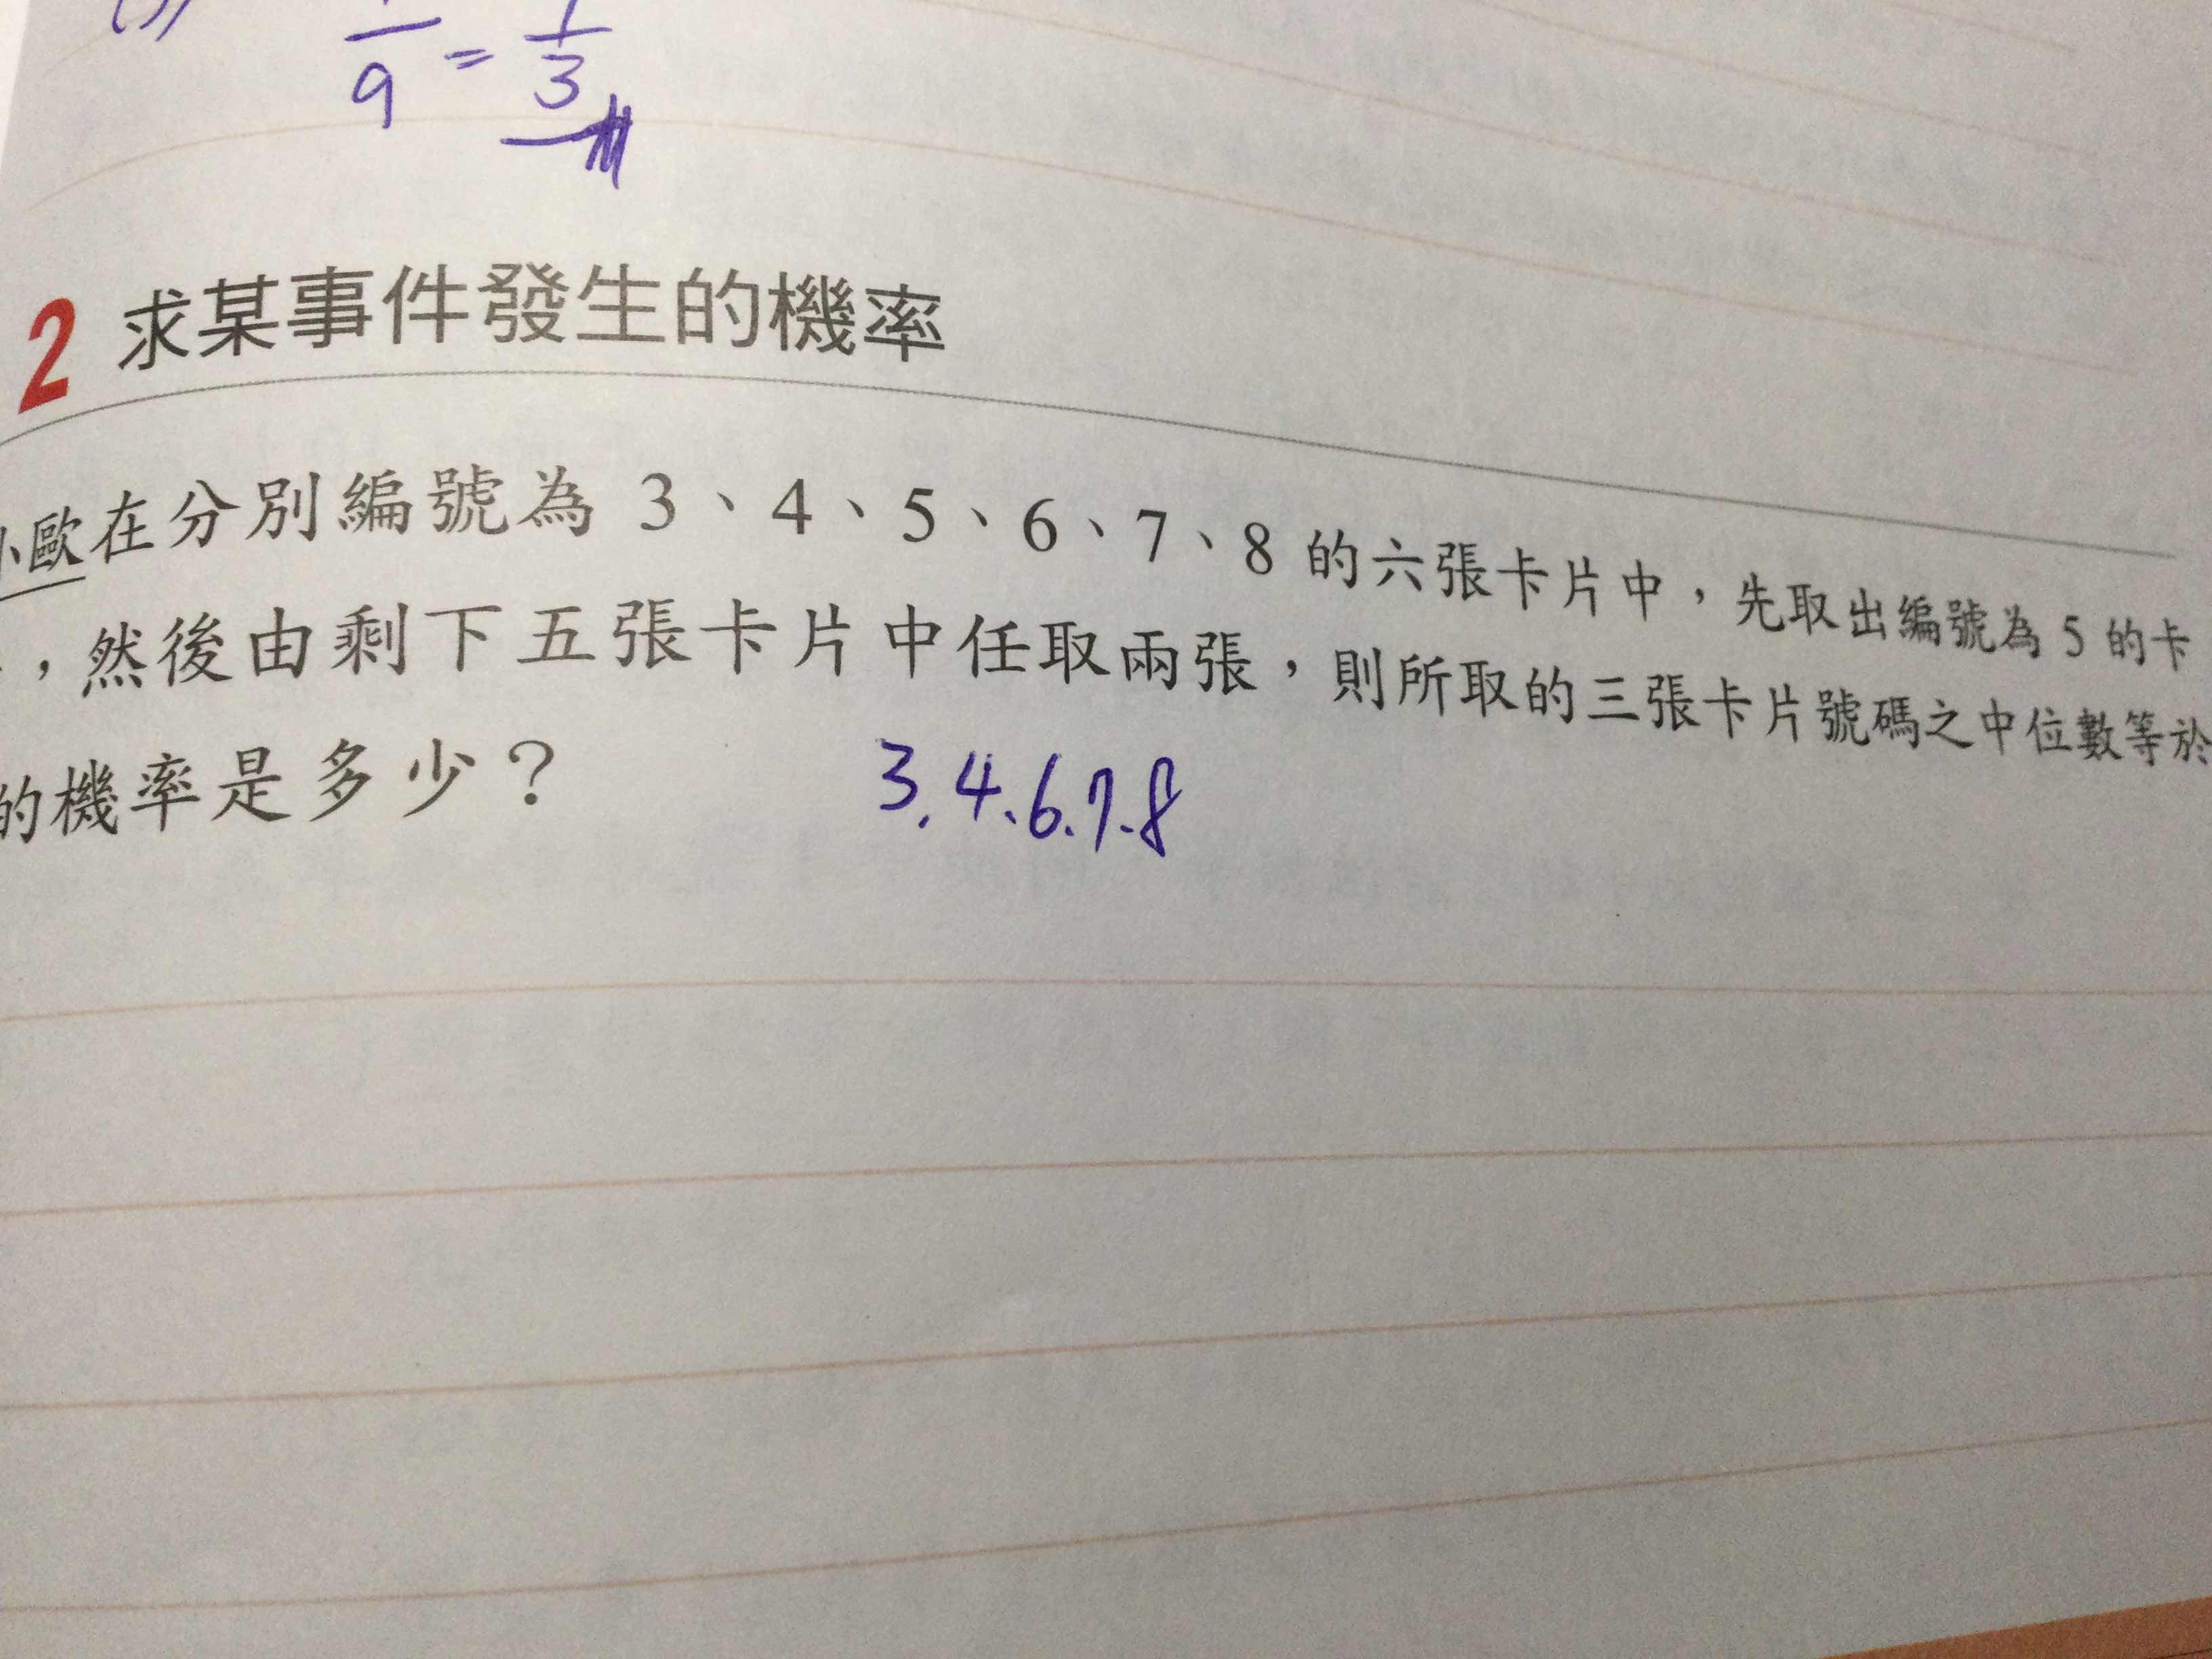 9 = 1/3
2 求某事件發生的機率
小歐在分別編號為 3、4、5、6、7、8 的六張卡片中，先取出編號為 5 的卡
，然後由剩下五張卡片中任取兩張，則所取的三張卡片號碼之中位數等於
的機率是多少？
3.4.6.7.8